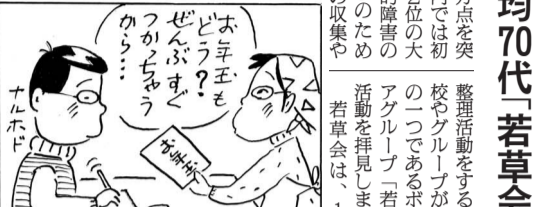 均70代「若草会
整理活動をする
校やグループが
の一つであるボ
アグループ「若
活動を拝見しま
若草会は、1
万点を突
内では初
2位の大
的障害の
のため
の収集や
お年玉も
どう?
ぜんぶすぐ
つかっちゃう
から…
お年玉
ナルホド